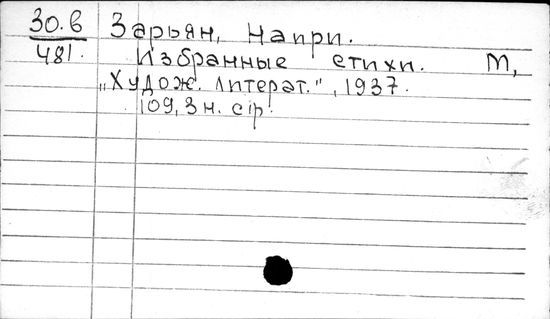 30.6 Зарьян, Наири.
481. Избранные стихи. М,
„Худож. литерат.", 1937.
109, 3 н. стр.